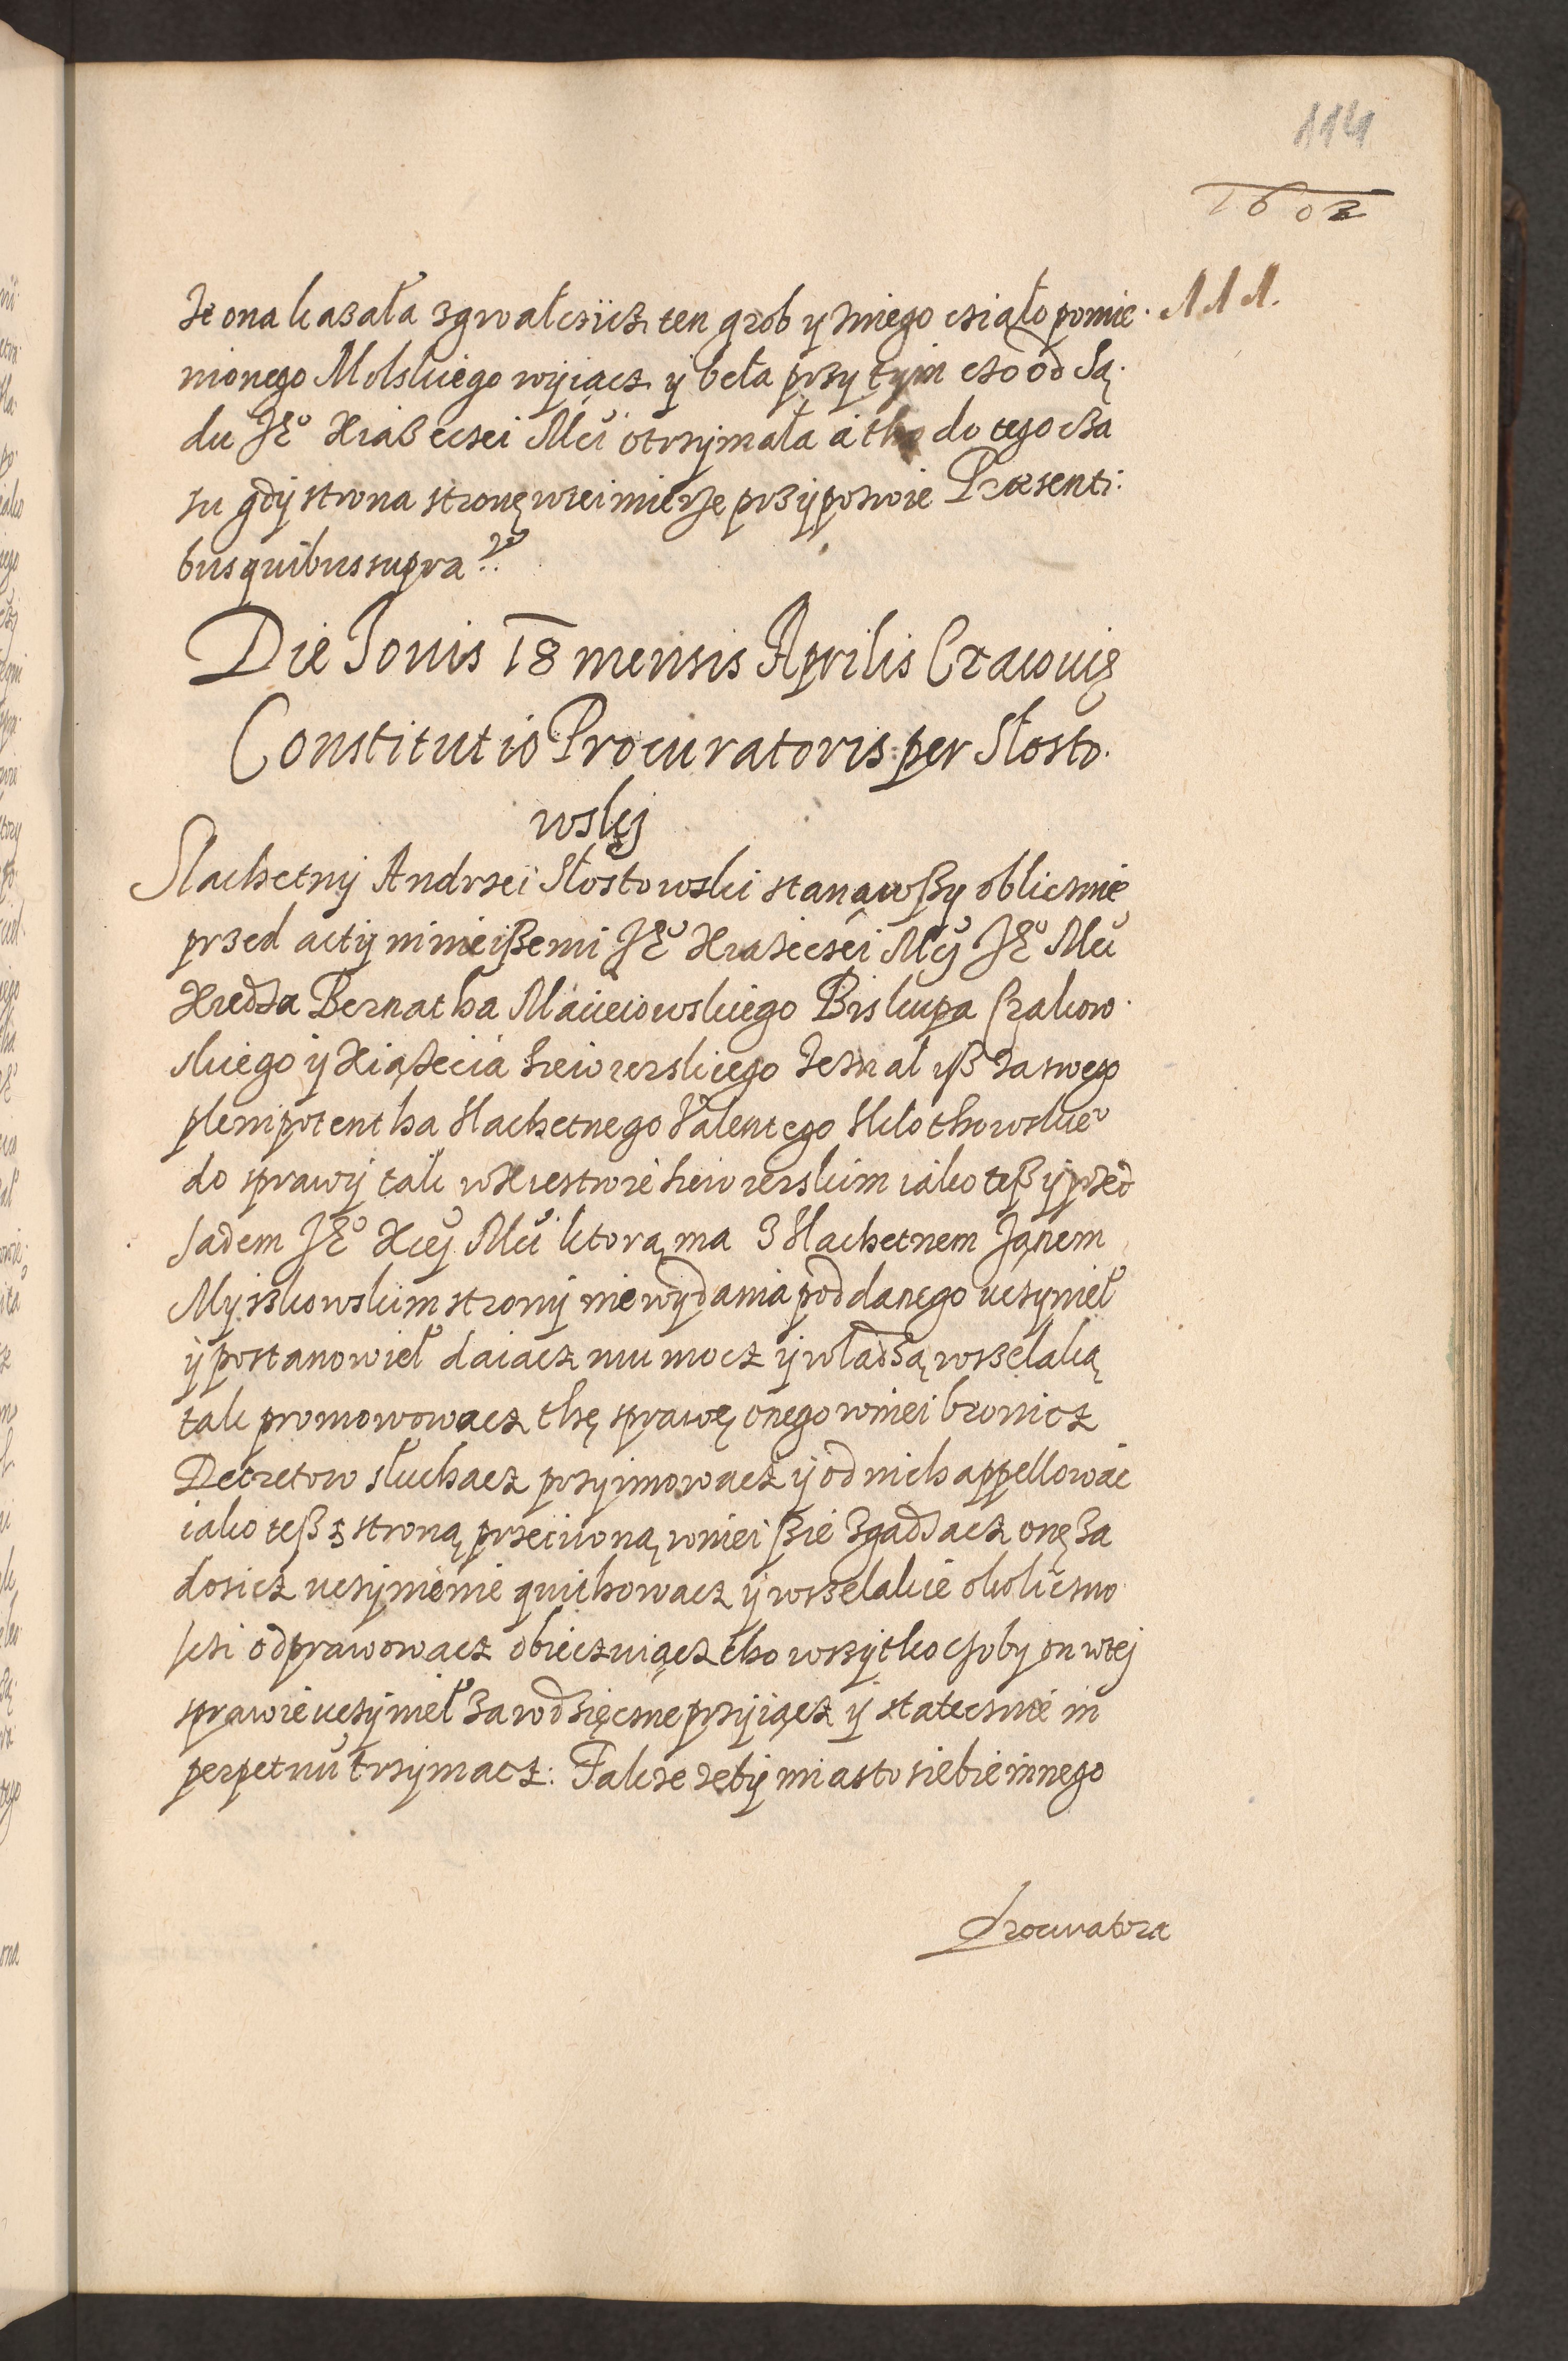 114
1602
że ona kazała zgwałczicz ten grob y zniego cziało pomie· 111.
nionego Molskiego wyiącz y beła przy tym czo od Są·
du Je° Xiązeczei Mci otrzymała á tho do tego cza
su gdy strona stronę wtei mierze przypozwie Præsenti:
bus quibus supra
Die Jouis 18 mensis Aprilis Cracouię
Constitutio Procuratoris per Słosto·
wskj
Slachetny Andrzei Słostowski stanąwszy oblicznie
przed acty ninieiszemi Je° Xiążeczei Mcj Je° Mci
Xiedza Bernatha Macieiowskiego Biskupa Crakow·
skiego y Xiążecia Siewierskiego zeznał isz za swego
plenipotentha slachetnego Valentego
do sprawy tak w Xiestwie Siewierskim iako tesz y przed
sądem Je° Xcej Mci ktorą ma z Slachetnem Janem
Myszkowskim strony nie wydania poddanego vczynieł
y postanowieł daiacz mu mocz y władzą wszelaką
tak promowowacz thę sprawę onego wniei bronicz
Decretow słuchacz przyimowacz y od nich appellowac
iako tesz z stroną przeciwną wniei szie zgadzacz onę za
dosicz vczynienie quithowacz y wszelakie okoliczno·
sczi odprawowacz obiecziuącz tho wszytko czoby on wtej
sprawie vczynieł za wdzięczne przyiącz y statecznie in
perpetuũ trzymacz: Takze zeby miasto siebie innego
Procuratora